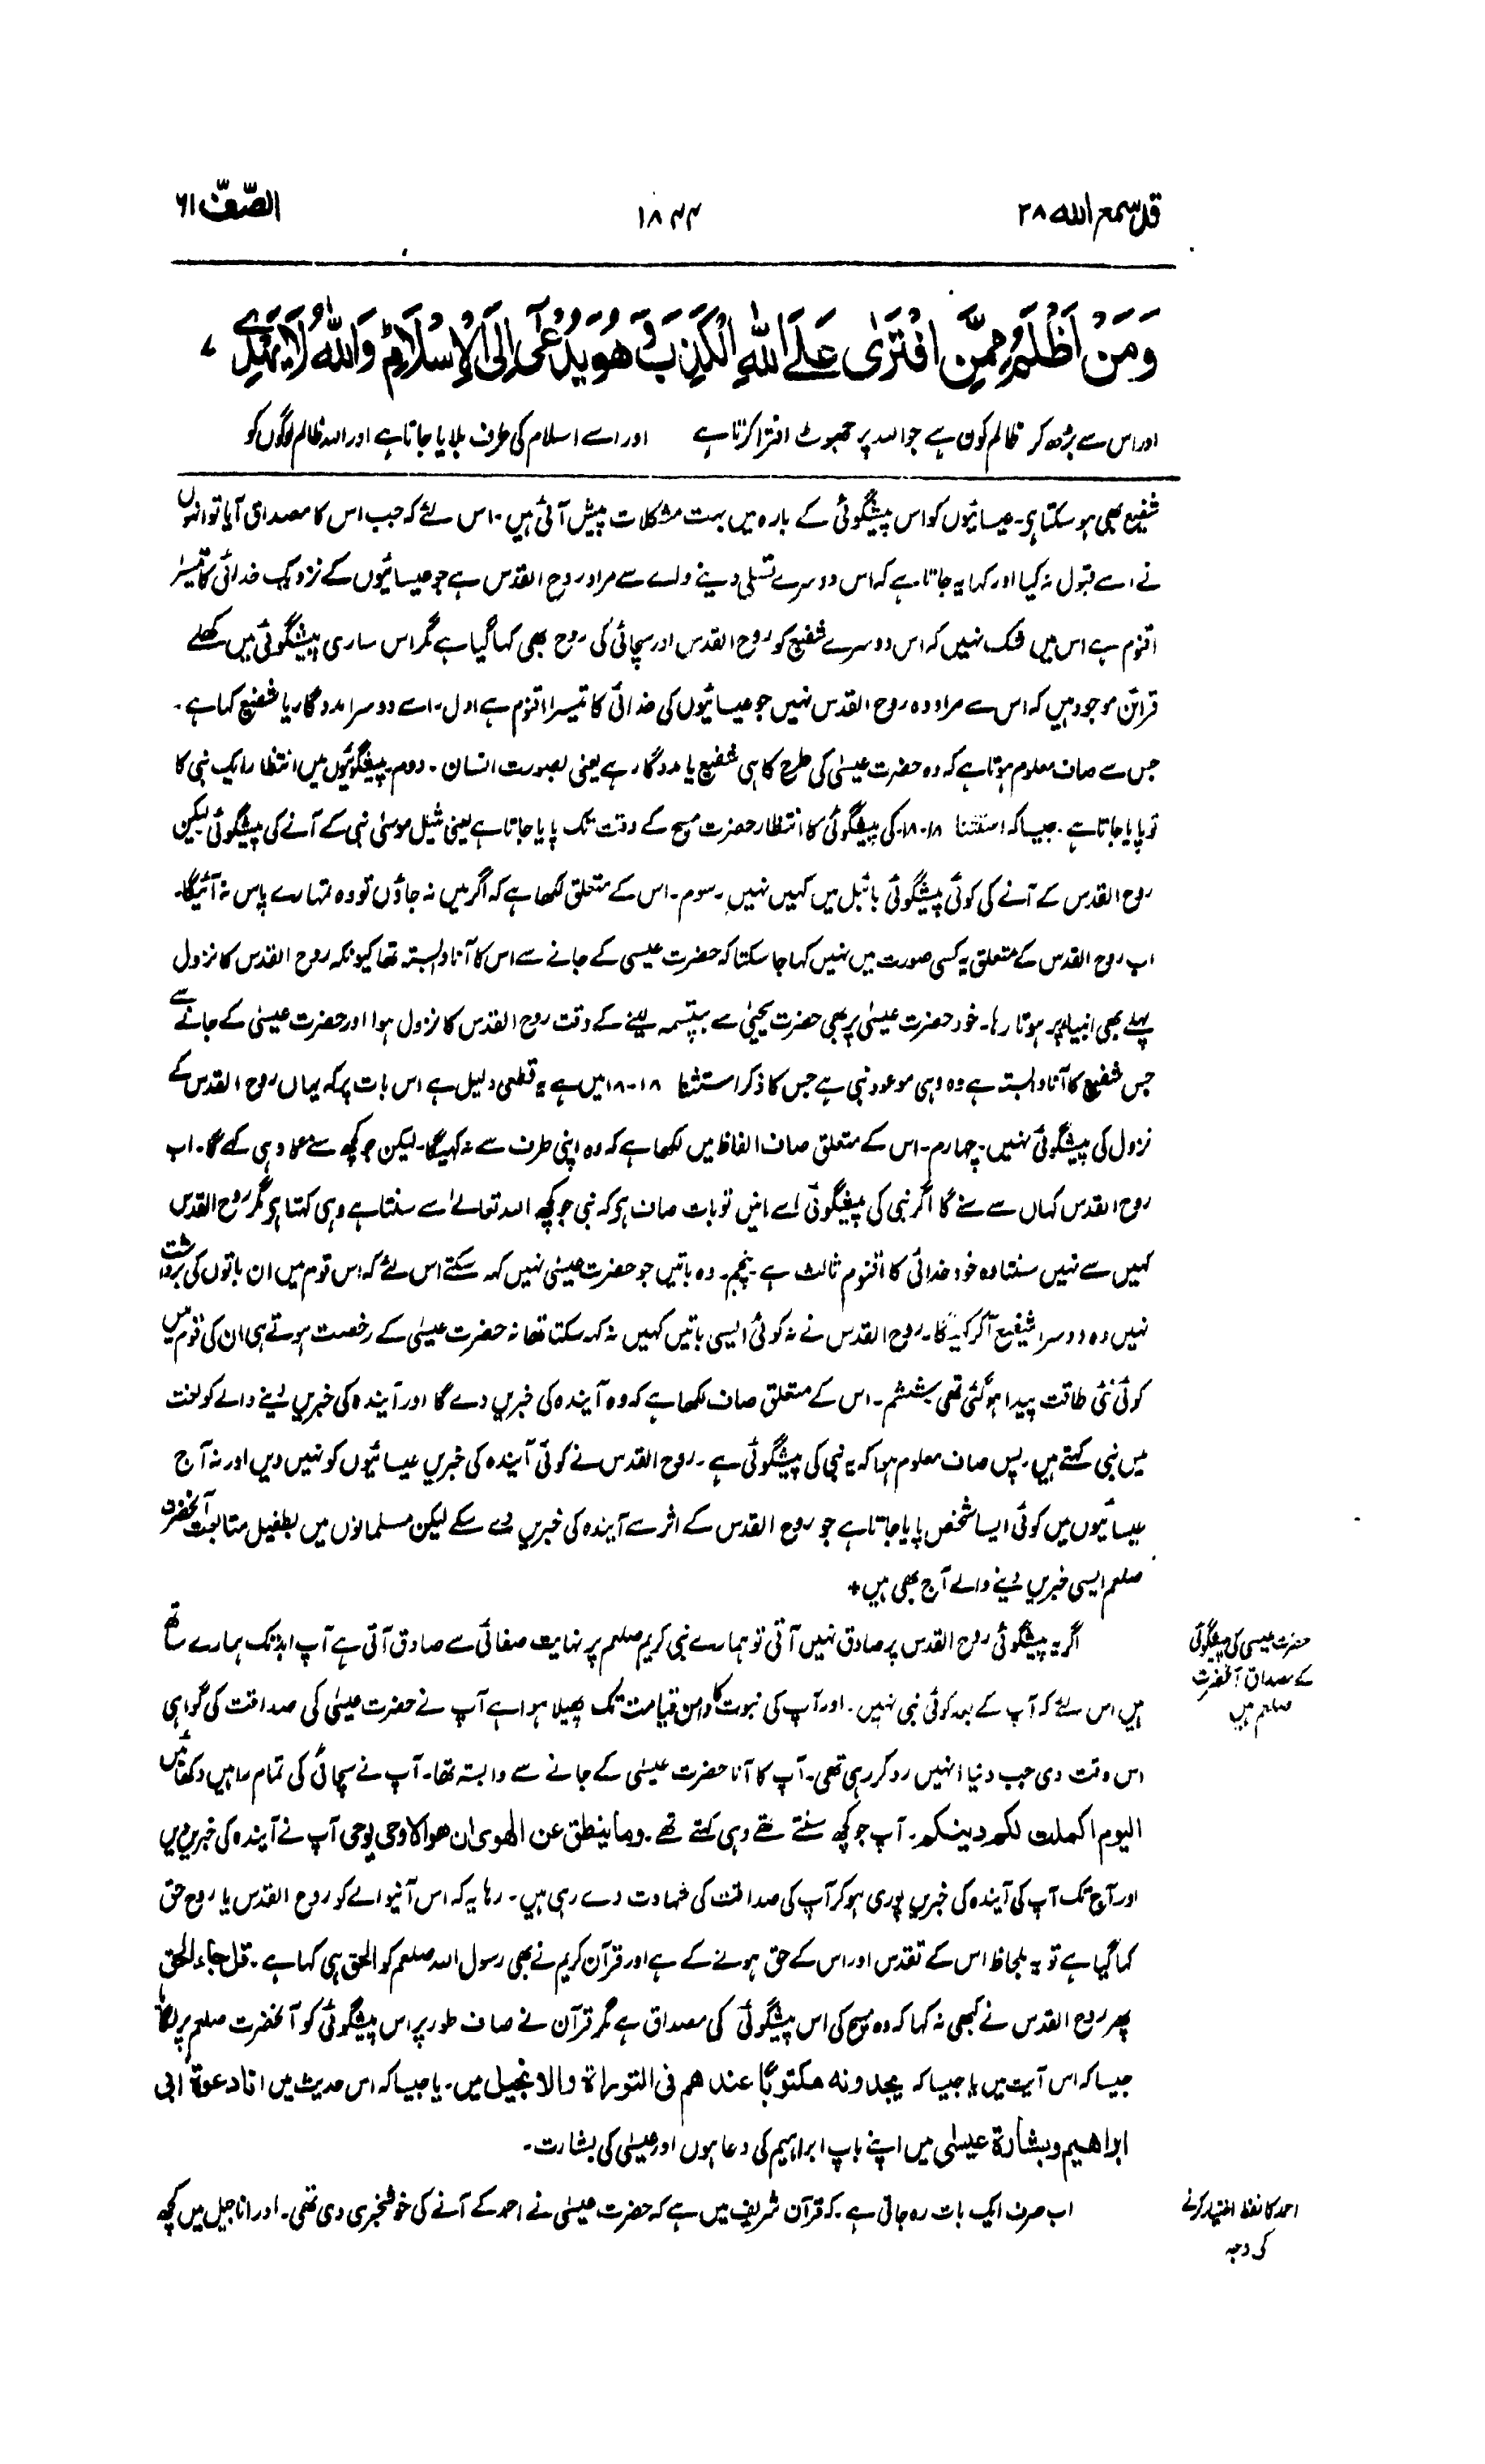 قد سمع الله ۲۸
۱۸۴۴
الصّفّ ۶۱
وَمَنْ اَظْلَمُ مِمَّنِ افْتَرٰى عَلَى اللّٰهِ الْكَذِبَ وَهُوَ يُدْعٰٓى اِلَى الْاِسْلَامِ ؕ وَاللّٰهُ لَا يَهْدِى
اور اس سے بڑھ کر ظالم کون ہے جو اللہ پر جھوٹ افترا کرتا ہے اور اسے اسلام کی طرف بلایا جاتا ہے اور اللہ ظالم لوگوں کو
شفیع بھی ہو سکتا ہی۔ عیسائیوں کو اس پیشگوئی کے بارہ میں بہت مشکلات پیش آئی ہیں۔ اس لئے کہ جب اس کا مصداق آیا تو انہوں
نے اسے قبول نہ کیا اور کہا یہ جاتا ہے کہ اس دوسرے تسلی دینے والے سے مراد روح القدس ہے جو عیسائیوں کے نزدیک خدائی کا تیسرا
اقنوم ہے اس میں شک نہیں کہ اس دوسرے شفیع کو روح القدس اور سچائی کی روح بھی کہا گیا ہے مگر اس ساری پیشگوئی میں کھلے
قرائن موجود ہیں کہ اس سے مراد وہ روح القدس نہیں جو عیسائیوں کی خدائی کا تیسرا اقنوم ہے اول۔ اسے دوسرا مددگار یا شفیع کہا ہے۔
جس سے صاف معلوم ہوتا ہے کہ وہ حضرت عیسیٰ کی طرح کا ہی شفیع یا مددگار ہے یعنی بصورت انسان۔ دوم۔ پیشگوئیوں میں انتظار ایک نبی کا
تو پایا جاتا ہے۔ جیسا کہ استثنا ۱۸-۱۸ کی پیشگوئی کا انتظار حضرت مسیح کے وقت تک پایا جاتا ہے یعنی مثیل موسیٰ نبی کے آنے کی پیشگوئی لیکن
روح القدس کے آنے کی کوئی پیشگوئی بائبل میں کہیں نہیں۔ سوم۔ اس کے متعلق لکھا ہے کہ اگر میں نہ جاؤں تو وہ تمہارے پاس نہ آئیگا۔
اب روح القدس کے متعلق یہ کسی صورت میں نہیں کہا جا سکتا کہ حضرت عیسیٰ کے جانے سے اس کا آنا وابستہ تھا کیونکہ روح القدس کا نزول
پہلے بھی انبیاء پر ہوتا رہا۔ خود حضرت عیسیٰ پر بھی حضرت یحییٰ سے بپتسمہ لینے کے وقت روح القدس کا نزول ہوا اور حضرت عیسیٰ کے جانے سے
جس شفیع کا آنا وابستہ ہے وہ وہی موعود نبی ہے جس کا ذکر استثنا ۱۸-۱۸ میں ہے یہ قطعی دلیل ہے اس بات پر کہ یہاں روح القدس کے
نزول کی پیشگوئی نہیں۔ چہارم۔ اس کے متعلق صاف الفاظ میں لکھا ہے کہ وہ اپنی طرف سے نہ کہیگا۔ لیکن جو کچھ سنے گا وہی کہے گا۔ اب
روح القدس کہاں سے سنے گا اگر نبی کی پیشگوئی اسے مانیں تو بات صاف ہی کہ نبی جو کچھ اللہ تعالےٰ سے سنتا ہے وہی کہتا ہی مگر روح القدس
کہیں سے نہیں سنتا وہ خود خدائی کا اقنوم ثالث ہے۔ پنجم۔ وہ باتیں جو حضرت عیسیٰ نہیں کہہ سکتے اس لئے کہ اس قوم میں ان باتوں کی برداشت
نہیں وہ دوسرا شفیع آکر کہیگا۔ روح القدس نے نہ کوئی ایسی باتیں کہیں نہ کہہ سکتا تھا نہ حضرت عیسیٰ کے رخصت ہوتے ہی ان کی قوم میں
کوئی نئی طاقت پیدا ہو گئی تھی۔ ششم۔ اس کے متعلق صاف لکھا ہے کہ وہ آیندہ کی خبریں دے گا اور آیندہ کی خبریں دینے والے کو لغت
میں نبی کہتے ہیں۔ پس صاف معلوم ہوا کہ یہ نبی کی پیشگوئی ہے۔ روح القدس نے کوئی آیندہ کی خبریں عیسائیوں کو نہیں دیں اور نہ آج
عیسائیوں میں کوئی ایسا شخص پایا جاتا ہے جو روح القدس کے اثر سے آیندہ کی خبریں دے سکے لیکن مسلمانوں میں بطفیل متابعت آنحضرت
صلعم ایسی خبریں دینے والے آج بھی ہیں+
اگر یہ پیشگوئی روح القدس پر صادق نہیں آتی تو ہمارے نبی کریم صلعم پر نہایت صفائی سے صادق آتی ہے آپ ابد تک ہمارے ساتھ
ہیں اس لئے کہ آپ کے بعد کوئی نبی نہیں۔ اور آپ کی نبوت کا دامن قیامت تک پھیلا ہوا ہے آپ نے حضرت عیسیٰ کی صداقت کی گواہی
اس وقت دی جب دنیا انہیں رد کر رہی تھی۔ آپ کا آنا حضرت عیسیٰ کے جانے سے وابستہ تھا۔ آپ نے سچائی کی تمام راہیں دکھائیں
الیوم اکملت لکم دینکم۔ آپ جو کچھ سنتے تھے وہی کہتے تھے۔ وما ینطق عن الھوی ان ھو الا وحی یوحی آپ نے آیندہ کی خبریں دیں
اور آج تک آپ کی آیندہ کی خبریں پوری ہو کر آپ کی صداقت کی شہادت دے رہی ہیں۔ رہا یہ کہ اس آنیوالے کو روح القدس یا روح حق
کہا گیا ہے تو یہ بلحاظ اس کے تقدس اور اس کے حق ہونے کے ہے اور قرآن کریم نے بھی رسول اللہ صلعم کو الحق ہی کہا ہے۔ قل جاء الحق
پھر روح القدس نے کبھی نہ کہا کہ وہ مسیح کی اس پیشگوئی کی مصداق ہے مگر قرآن نے صاف طور پر اس پیشگوئی کو آنحضرت صلعم پر لگایا
جیسا کہ اس آیت میں یا جیسا کہ یجدونہ مکتوبًا عندھم فی التوراۃ والانجیل میں۔ یا جیسا کہ اس حدیث میں انا دعوۃ ابی
ابراھیم وبشارۃ عیسٰی میں اپنے باپ ابراہیم کی دعا ہوں اور عیسیٰ کی بشارت۔
اب صرف ایک بات رہ جاتی ہے۔ کہ قرآن شریف میں ہے کہ حضرت عیسیٰ نے احمد کے آنے کی خوشخبری دی تھی۔ اور اناجیل میں کچھ
حضرت عیسیٰ کی پیشگوئی
کے مصداق آنحضرت
صلعم ہیں
احمد کا لفظ اختیار کرنے
کی وجہ